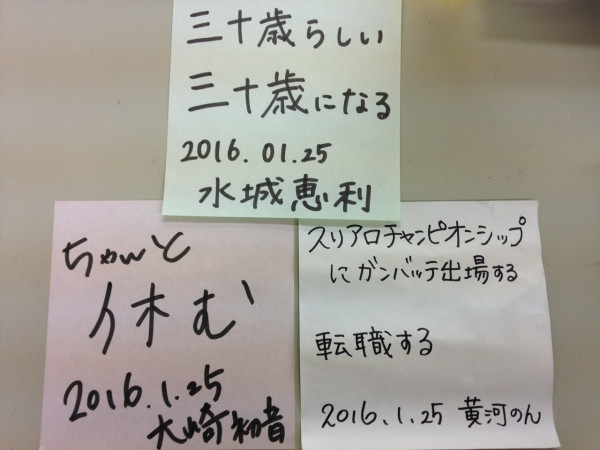 三十歳らしい
三十歳になる
2016.01.25
水城恵利
ちゃんと
休む
2016.1.25
大崎初音
スリアロチャンピオンシップ
にガンバッテ出場する
転職する
2016.1.25 黄河のん